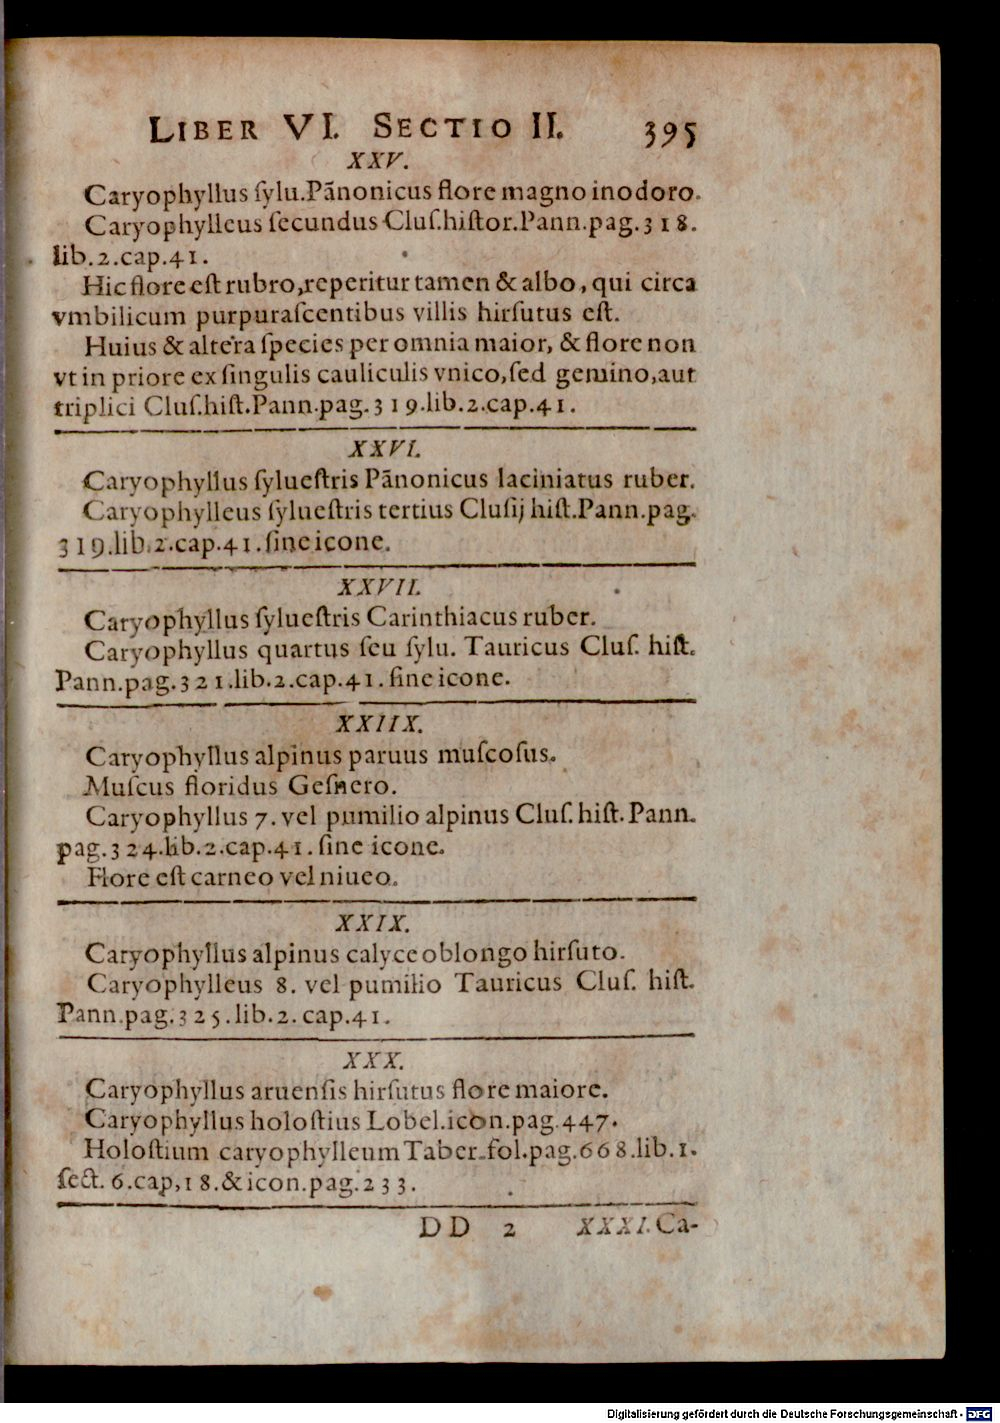 LIBER VI. SECTIO II. 395
XXV.
Caryophyllus ſylu.Pãnonicus flore magno inodoro.
Caryophylleus ſecundus Cluſ.hiſtor.Pann.pag.318.
lib.2.cap.41.
Hic flore eſt rubro,reperitur tamen & albo, qui circa
vmbilicum purpuraſcentibus villis hirſutus eſt.
Huius & altera ſpecies per omnia maior, & flore non
vt in priore ex ſingulis cauliculis vnico,ſed gemino,aut
triplici Cluſ.hiſt.Pann.pag.319.lib.2.cap.41.
XXVI.
Caryophyllus ſylueſtris Pãnonicus laciniatus ruber.
Caryophylleus ſylueſtris tertius Cluſij hiſt.Pann.pag.
319.lib.2.cap.41.ſine icone.
XXVII.
Caryophyllus ſylueſtris Carinthiacus ruber.
Caryophyllus quartus ſeu ſylu. Tauricus Cluſ. hiſt.
Pann.pag.321.lib.2.cap.41.ſine icone.
XXIIX.
Caryophyllus alpinus paruus muſcoſus.
Muſcus floridus Geſnero.
Caryophyllus 7. vel pumilio alpinus Cluſ.hiſt.Pann.
pag.324.lib.2.cap.41.ſine icone.
Flore eſt carneo vel niueo.
XXIX.
Caryophyllus alpinus calyce oblongo hirſuto.
Caryophylleus 8. vel pumilio Tauricus Cluſ. hiſt.
Pann.pag.325.lib.2.cap.41.
XXX.
Caryophyllus aruenſis hirſutus flore maiore.
Caryophyllus holoſtius Lobel.icon.pag.447.
Holoſtium caryophylleum Taber.fol.pag.668.lib.1.
ſect. 6.cap,18.& icon.pag.233.
DD 2 XXXI.Ca-
Digitalisierung gefördert durch die Deutsche Forschungsgemeinschaft - DFG